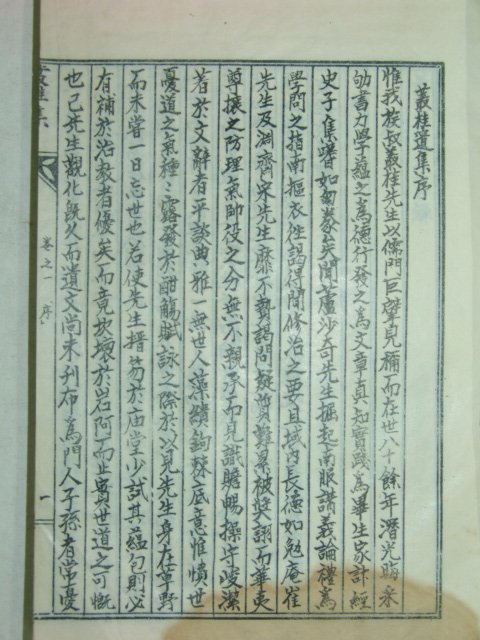 叢桂遺集序
惟我族叔叢桂先生以儒門巨擘見稱而在世八十餘年潛光晦采
劬書力學蘊之爲德行發之爲文章眞知實踐爲畢生家計經
史子集嗜如芻豢矣聞蘆沙奇先生掘起南服講義論禮爲
學問之指南摳衣徃謁得聞修治之要且域內長德如勉庵崔
先生及淵齋宋先生靡不贄謁問疑質難累被奬詡而華夷
尊攘之防理氣帥役之分無不親承而見識贍暢操守峻潔
著於文辭者平淡典雅一無世人藻繢鉤棘底意惟憤世
憂道之氣種々露發於酣觴賦詠之際於以見先生身在草野
而未嘗一日忘世也若使先生搢笏於庙堂少試其蘊包則必
有補於治敎者優矣而竟坎壈於岩阿而止實世道之可慨
也已先生觀化旣久而遺文尙未刊布爲門人子孫者常憂
叢桂集
卷之一
序
一